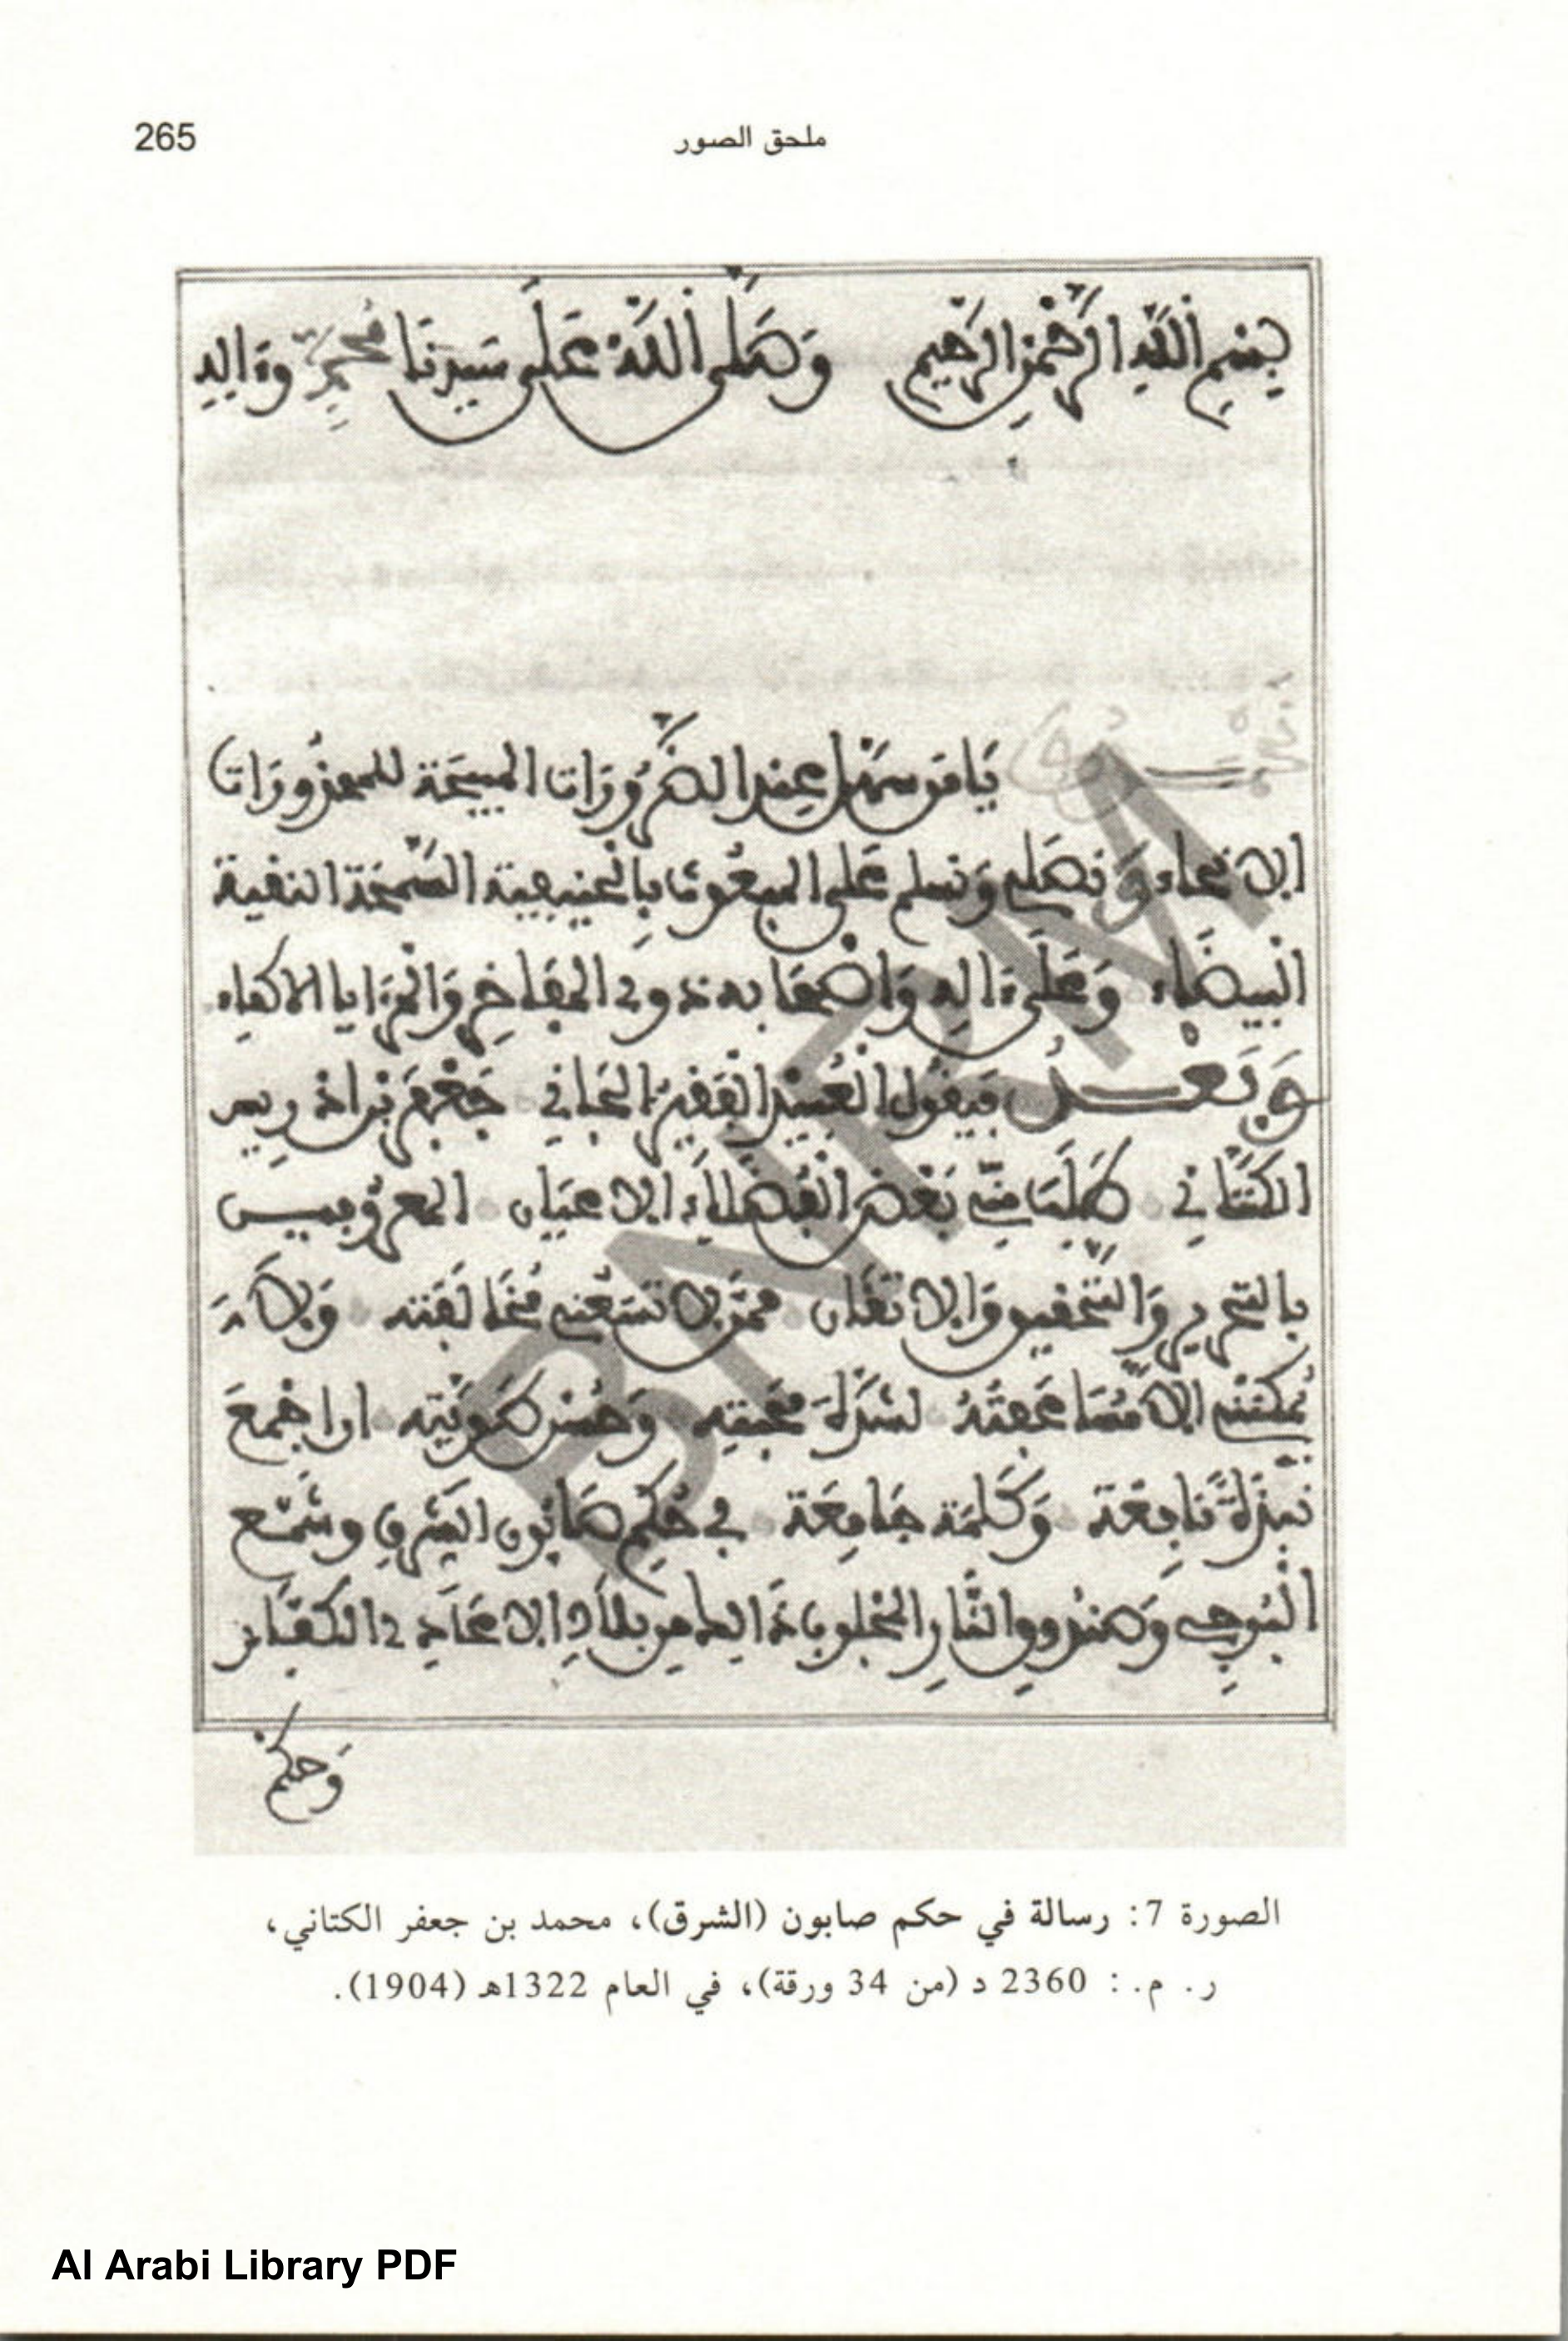 265
ملحق الصور
بِسْمِ اللَّهِ الرَّحْمَنِ الرَّحِيمِ وَصَلَّى اللَّهُ عَلَى سَيِّدِنَا مُحَمَّدٍ وءالِهِ
يَامَن سَهَّل عِند الضَّرُورَات المبيحَة للمحذورَات
وَنصَلي وَنسلم عَلى المبعُوث بِالْحنيفية السَّمحَة النقية
الْبيضَاء وَعَلى ءالِه وَأصْحَابه ذوي المفَاخِر وَالْمزَايا الاكفاء
وَبَعْد فيقُول الْعُبَيْد الْفَقِير الْجَاني جَعْفَر بْن ادْريس
الكتَّاني طَلَبَ مِنّي بَعْض الْفُضَلاَء الاعيَان المعروفيــن
بالتحرير وَالتحْقيق وَالاتقَان ممَّن لا تسَعُني مُخَالفَته وَلاَ
يُمكنني إلاَّ مُسَاعَفَتُهُ لشدَّة محَبته وَحُسْن طَوِيَّته ان اجْمعَ
نبْذَةً نَافِعَة وَكَلِمَة جَامِعَة في حُكمِ صَابُون الشرْقِ وشمْع
الْبُوجِي وَصندُوق النَّارِ المجْلوب ذَالِك من بلاَدِ الاعَادِي الكفَّار
وَحكم
الصورة 7: رسالة في حكم صابون (الشرق)، محمد بن جعفر الكتاني،
ر. م. : 2360 د (من 34 ورقة)، في العام 1322هـ (1904).
BNRM
Al Arabi Library PDF